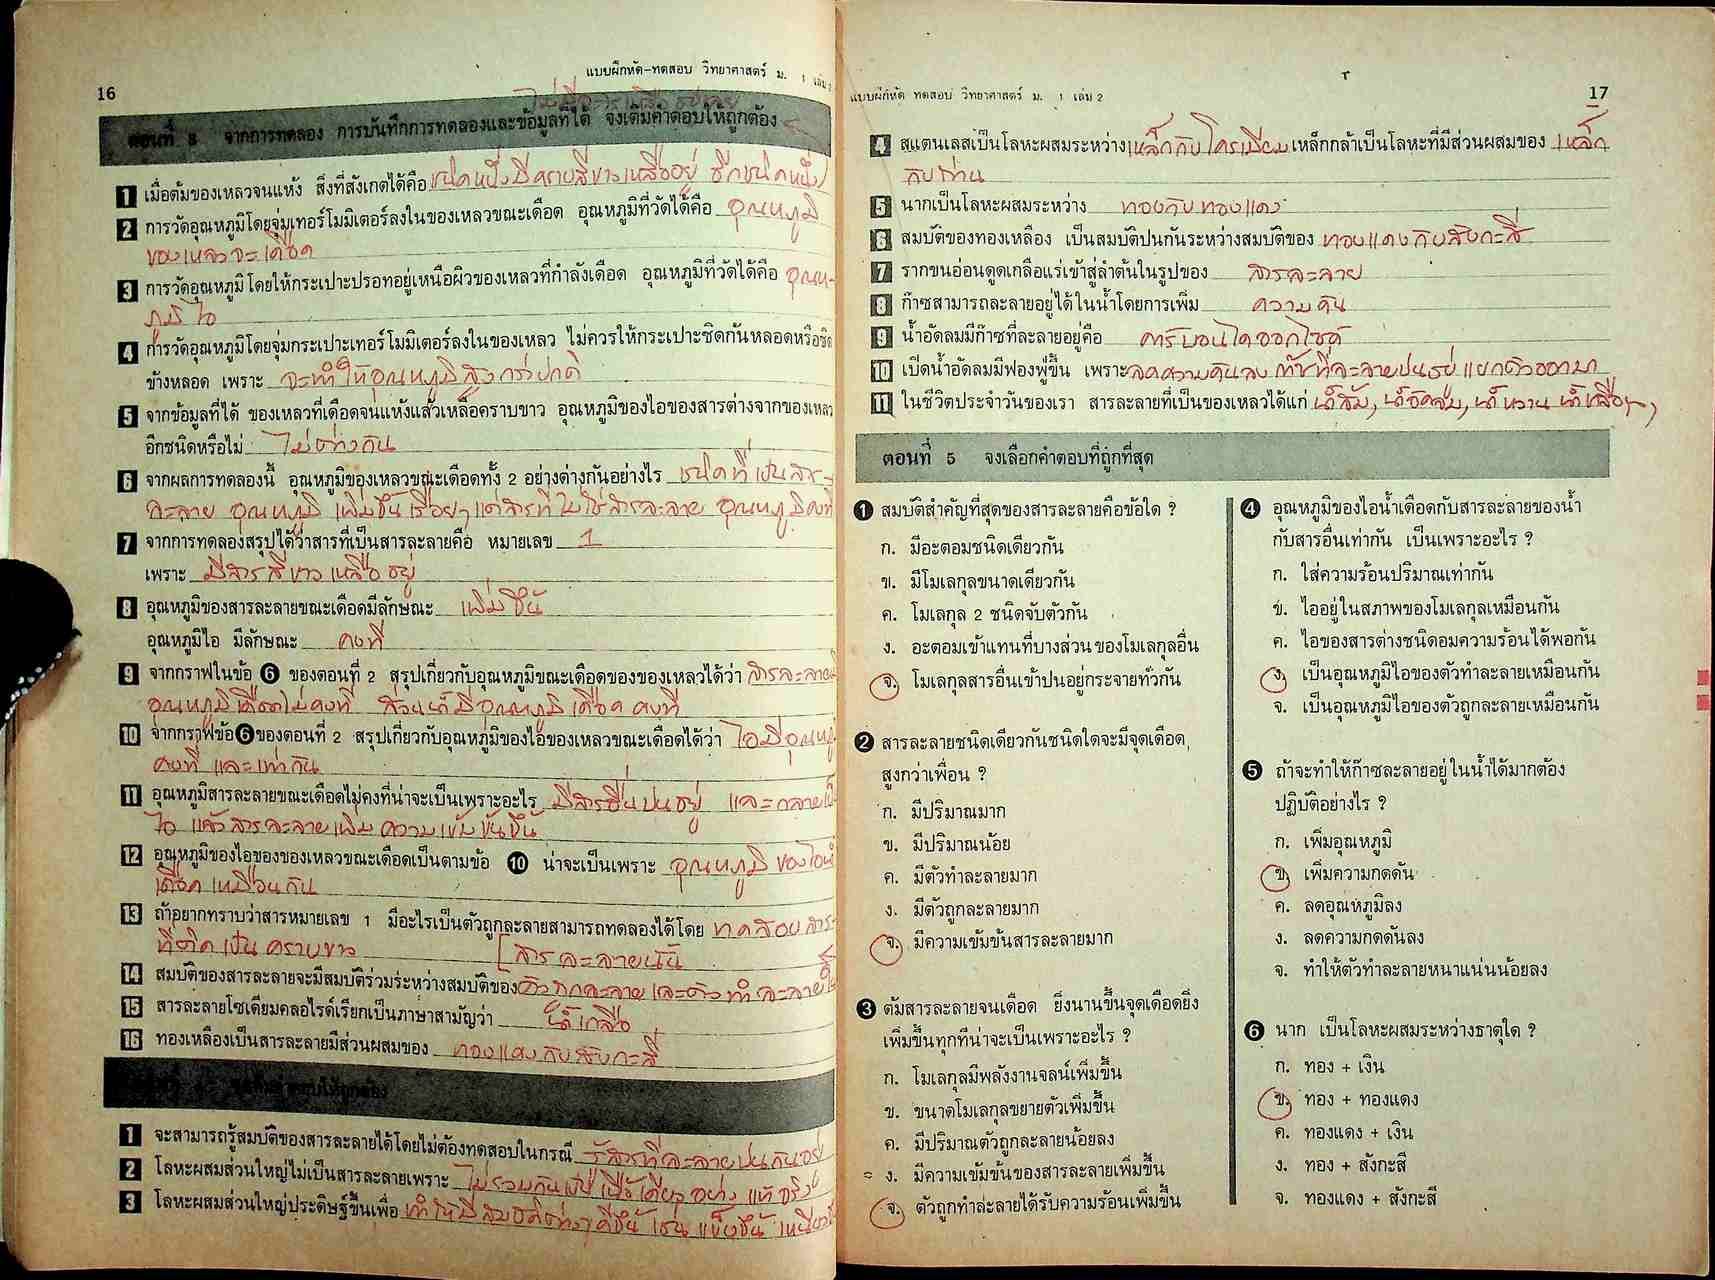 16
แบบฝึกหัด-ทดสอบ วิทยาศาสตร์ ม. 1 เล่ม 2
ตอนที่ 3 จากการทดลอง การบันทึกการทดลองและข้อมูลที่ได้ จงเติมคำตอบให้ถูกต้อง
1 เมื่อต้มของเหลวจนแห้ง สิ่งที่สังเกตได้คือ ชนิดหนึ่งมีคราบสีขาวเหลืออยู่ อีกชนิดหนึ่ง
ไม่มีอะไรเหลืออยู่เลย
2 การวัดอุณหภูมิโดยจุ่มเทอร์โมมิเตอร์ลงในของเหลวขณะเดือด อุณหภูมิที่วัดได้คือ อุณหภูมิ
ของเหลวจะเดือด
3 การวัดอุณหภูมิโดยให้กระเปาะปรอทอยู่เหนือผิวของเหลวที่กำลังเดือด อุณหภูมิที่วัดได้คือ อุณห-
ภูมิไอ
4 การวัดอุณหภูมิโดยจุ่มกระเปาะเทอร์โมมิเตอร์ลงในของเหลว ไม่ควรให้กระเปาะชิดก้นหลอดหรือชิด
ข้างหลอด เพราะ จะทำให้อุณหภูมิสูงกว่าปกติ
5 จากข้อมูลที่ได้ ของเหลวที่เดือดจนแห้งแล้วเหลือคราบขาว อุณหภูมิของไอของสารต่างจากของเหลว
อีกชนิดหรือไม่ ไม่ต่างกัน
6 จากผลการทดลองนี้ อุณหภูมิของเหลวขณะเดือดทั้ง 2 อย่างต่างกันอย่างไร ชนิดที่เป็นสาร-
ละลาย อุณหภูมิ เพิ่มขึ้นเรื่อยๆ แต่สารที่ไม่ใช่สารละลาย อุณหภูมิคงที่
7 จากการทดลองสรุปได้ว่าสารที่เป็นสารละลายคือ หมายเลข 1
เพราะ มีสารสีขาวเหลืออยู่
8 อุณหภูมิของสารละลายขณะเดือดมีลักษณะ เพิ่มขึ้น
อุณหภูมิไอ มีลักษณะ คงที่
9 จากกราฟในข้อ 6 ของตอนที่ 2 สรุปเกี่ยวกับอุณหภูมิขณะเดือดของของเหลวได้ว่า สารละลาย
อุณหภูมิเดือดไม่คงที่ ส่วนน้ำมีอุณหภูมิเดือดคงที่
10 จากกราฟข้อ 6 ของตอนที่ 2 สรุปเกี่ยวกับอุณหภูมิของไอของเหลวขณะเดือดได้ว่า ไอมีอุณหภูมิ
คงที่ และเท่ากัน
11 อุณหภูมิสารละลายขณะเดือดไม่คงที่น่าจะเป็นเพราะอะไร มีสารอื่นปนอยู่ และกลายเป็น
ไอ แล้วสารละลายเพิ่มความเข้มข้นขึ้น
12 อุณหภูมิของไอของของเหลวขณะเดือดเป็นตามข้อ 10 น่าจะเป็นเพราะ อุณหภูมิของไอน้ำ
เดือดเหมือนกัน
13 ถ้าอยากทราบว่าสารหมายเลข 1 มีอะไรเป็นตัวถูกละลายสามารถทดลองได้โดย ทดสอบสาร-
ที่ติดเป็นคราบขาว
14 สมบัติของสารละลายจะมีสมบัติร่วมระหว่างสมบัติของ ตัวถูกละลายและตัวทำละลายใน
[สารละลายนั้น
15 สารละลายโซเดียมคลอไรด์เรียกเป็นภาษาสามัญว่า น้ำเกลือ
16 ทองเหลืองเป็นสารละลายมีส่วนผสมของ ทองแดงกับสังกะสี
1 จะสามารถรู้สมบัติของสารละลายได้โดยไม่ต้องทดสอบในกรณี รู้สารที่ละลายปนกันอยู่
2 โลหะผสมส่วนใหญ่ไม่เป็นสารละลายเพราะ ไม่รวมกันเป็นเนื้อเดียวอย่างแท้จริง
3 โลหะผสมส่วนใหญ่ประดิษฐ์ขึ้นเพื่อ ทำให้มีสมบัติต่างๆดีขึ้น เช่น แข็งขึ้น เหนียวขึ้น
แบบฝึกหัด ทดสอบ วิทยาศาสตร์ ม. 1 เล่ม 2
17
4 สแตนเลสเป็นโลหะผสมระหว่าง เหล็กกับโครเมียม เหล็กกล้าเป็นโลหะที่มีส่วนผสมของ เหล็ก
กับถ่าน
5 นากเป็นโลหะผสมระหว่าง ทองกับทองแดง
6 สมบัติของทองเหลือง เป็นสมบัติปนกันระหว่างสมบัติของ ทองแดงกับสังกะสี
7 รากขนอ่อนดูดเกลือแร่เข้าสู่ลำต้นในรูปของ สารละลาย
8 ก๊าซสามารถละลายอยู่ได้ในน้ำโดยการเพิ่ม ความดัน
9 น้ำอัดลมมีก๊าซที่ละลายอยู่คือ คาร์บอนไดออกไซด์
10 เปิดน้ำอัดลมมีฟองฟู่ขึ้น เพราะ ลดความดันลง ก๊าซที่ละลายปนอยู่แยกตัวออกมา
11 ในชีวิตประจำวันของเรา สารละลายที่เป็นของเหลวได้แก่ น้ำส้ม, น้ำอัดลม, น้ำหวาน น้ำเชื่อม,
ตอนที่ 5 จงเลือกคำตอบที่ถูกที่สุด
1 สมบัติสำคัญที่สุดของสารละลายคือข้อใด ?
ก. มีอะตอมชนิดเดียวกัน
ข. มีโมเลกุลขนาดเดียวกัน
ค. โมเลกุล 2 ชนิดจับตัวกัน
ง. อะตอมเข้าแทนที่บางส่วนของโมเลกุลอื่น
จ. โมเลกุลสารอื่นเข้าปนอยู่กระจายทั่วกัน
2 สารละลายชนิดเดียวกันชนิดใดจะมีจุดเดือด
สูงกว่าเพื่อน ?
ก. มีปริมาณมาก
ข. มีปริมาณน้อย
ค. มีตัวทำละลายมาก
ง. มีตัวถูกละลายมาก
จ. มีความเข้มข้นสารละลายมาก
3 ต้มสารละลายจนเดือด ยิ่งนานขึ้นจุดเดือดยิ่ง
เพิ่มขึ้นทุกทีน่าจะเป็นเพราะอะไร ?
ก. โมเลกุลมีพลังงานจลน์เพิ่มขึ้น
ข. ขนาดโมเลกุลขยายตัวเพิ่มขึ้น
ค. มีปริมาณตัวถูกละลายน้อยลง
ง. มีความเข้มข้นของสารละลายเพิ่มขึ้น
จ. ตัวถูกทำละลายได้รับความร้อนเพิ่มขึ้น
4 อุณหภูมิของไอน้ำเดือดกับสารละลายของน้ำ
กับสารอื่นเท่ากัน เป็นเพราะอะไร ?
ก. ใส่ความร้อนปริมาณเท่ากัน
ข. ไออยู่ในสภาพของโมเลกุลเหมือนกัน
ค. ไอของสารต่างชนิดอมความร้อนได้พอกัน
ง. เป็นอุณหภูมิไอของตัวทำละลายเหมือนกัน
จ. เป็นอุณหภูมิไอของตัวถูกละลายเหมือนกัน
5 ถ้าจะทำให้ก๊าซละลายอยู่ในน้ำได้มากต้อง
ปฏิบัติอย่างไร ?
ก. เพิ่มอุณหภูมิ
ข. เพิ่มความกดดัน
ค. ลดอุณหภูมิลง
ง. ลดความกดดันลง
จ. ทำให้ตัวทำละลายหนาแน่นน้อยลง
6 นาก เป็นโลหะผสมระหว่างธาตุใด ?
ก. ทอง + เงิน
ข. ทอง + ทองแดง
ค. ทองแดง + เงิน
ง. ทอง + สังกะสี
จ. ทองแดง + สังกะสี